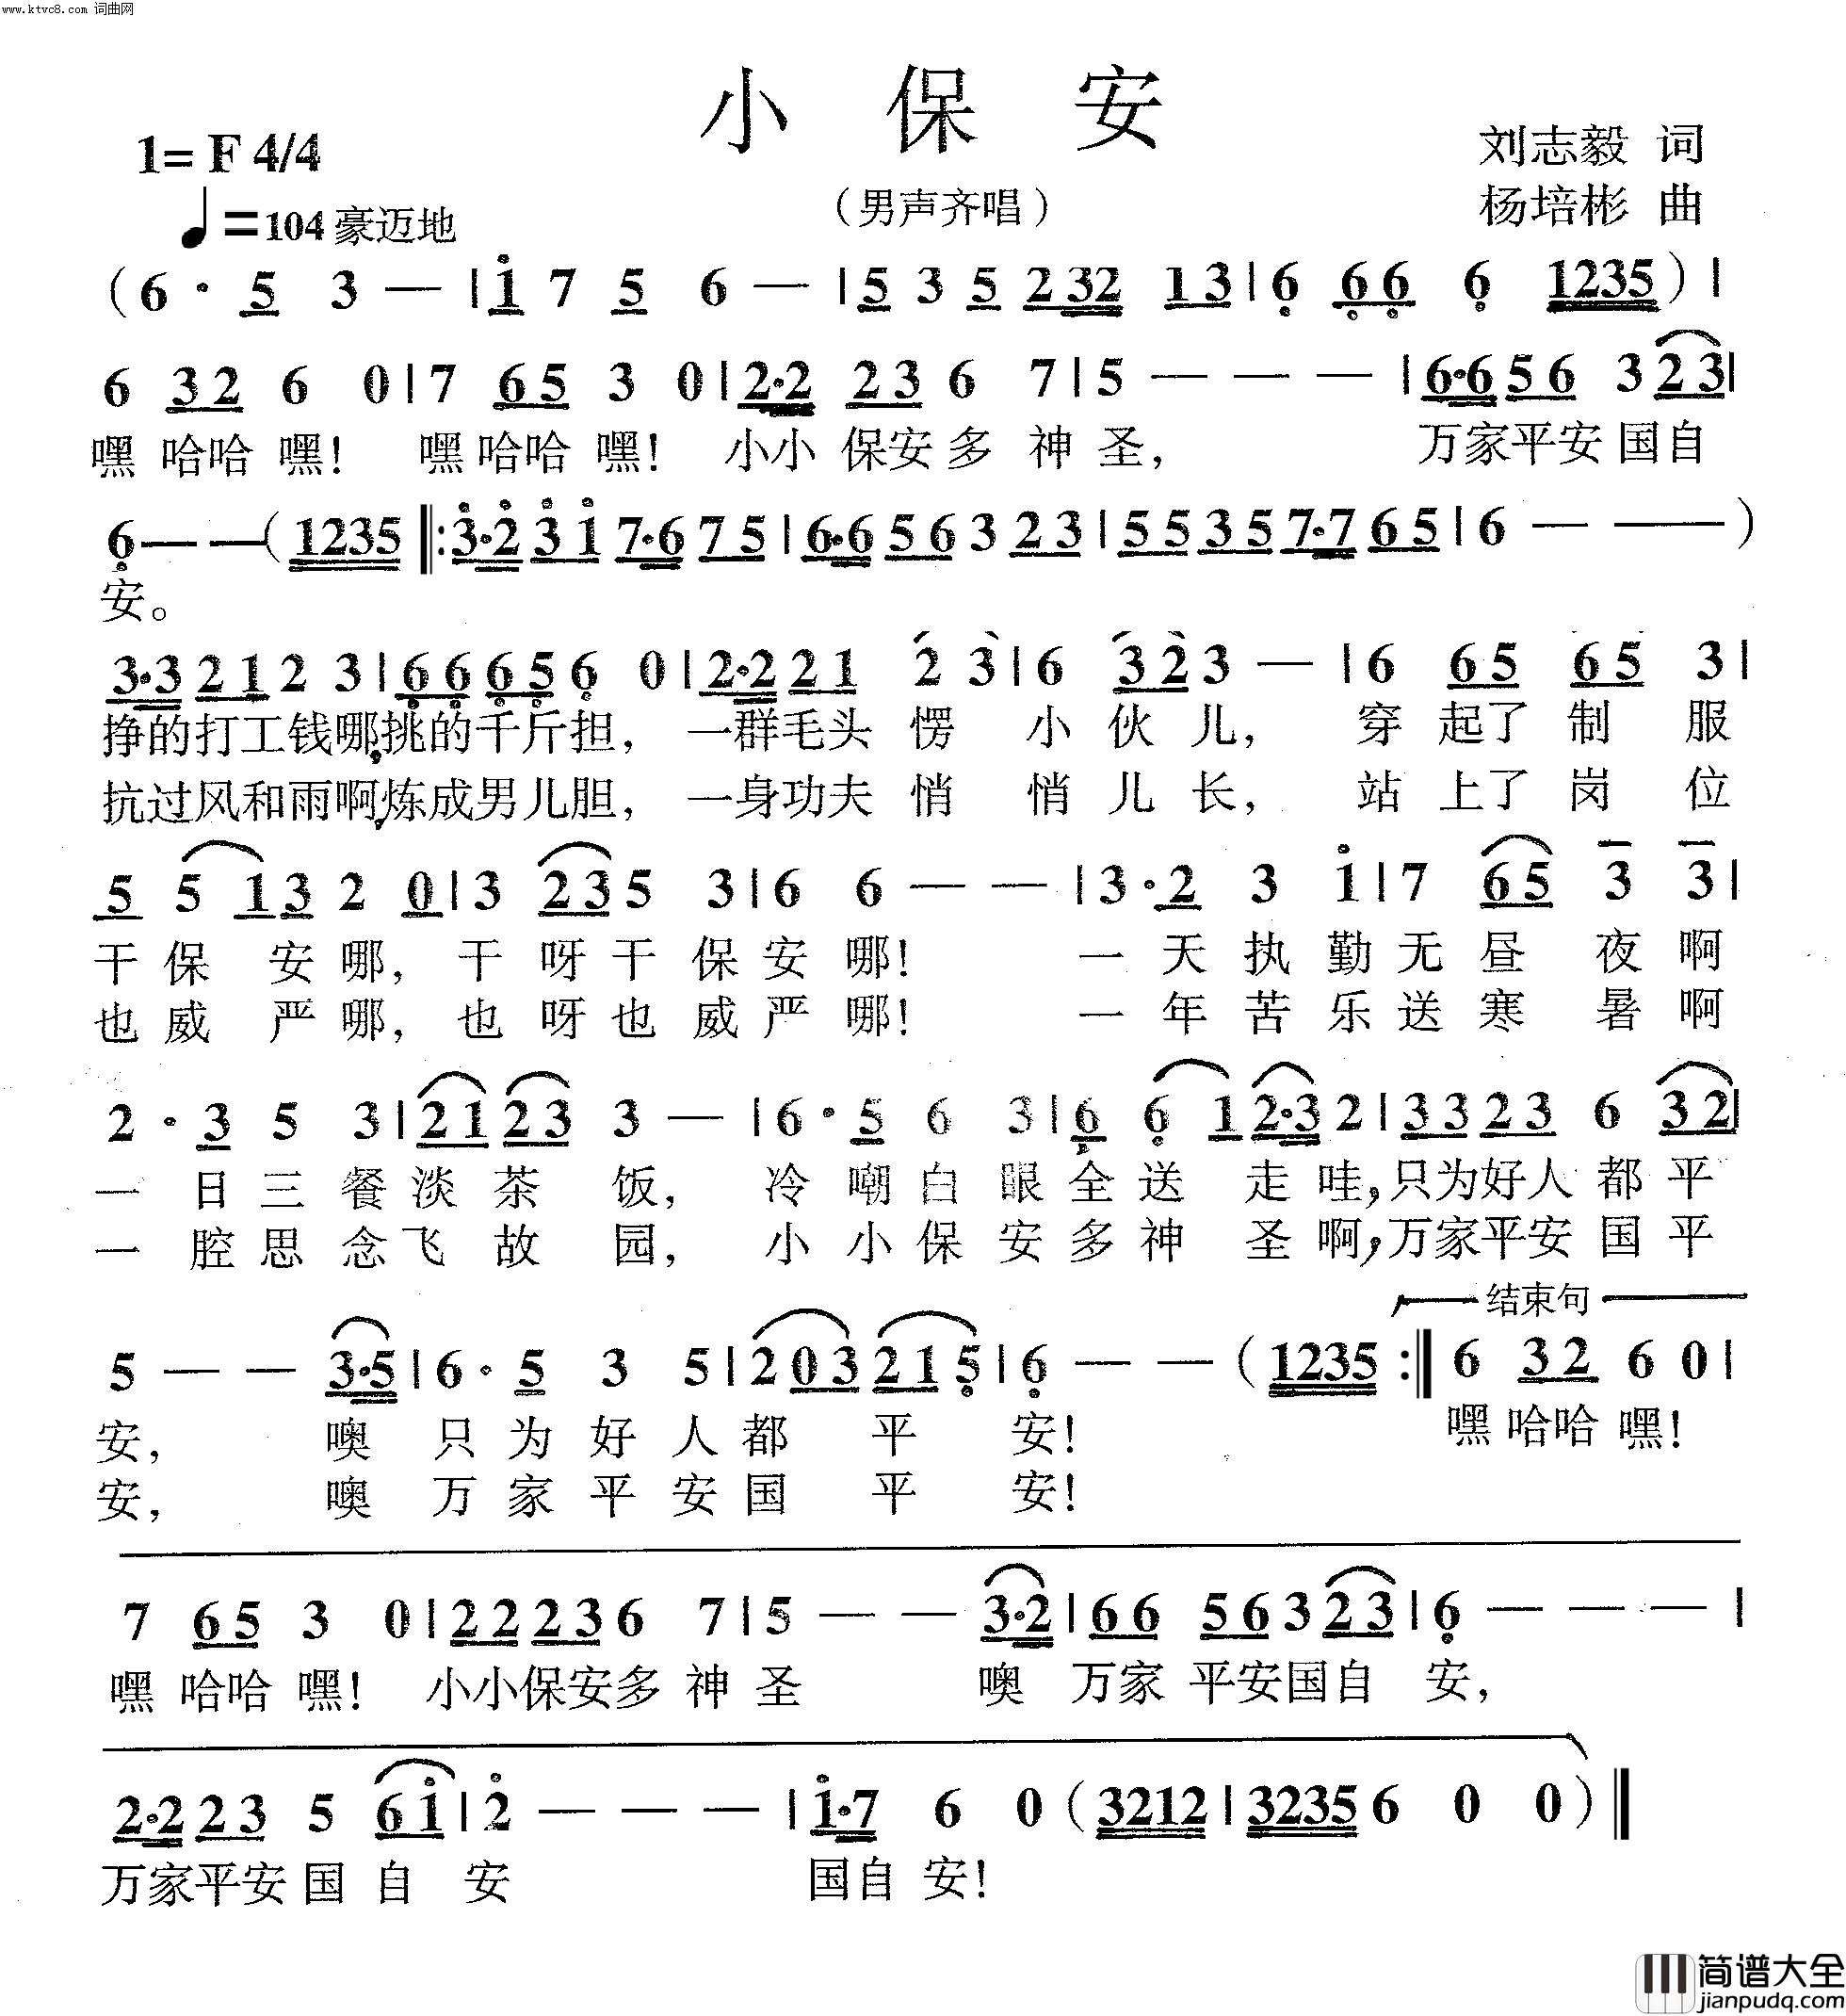 www.ktvc8.com 词曲网
小 保 安
1= F 4/4
刘志毅 词
(男声齐唱)
杨培彬 曲
♩=104 豪迈地
(6· 5 3 — | 1̇ 7 5 6 — | 5 3 5 2 32 1 3 | 6̣ 6̣ 6̣ 6̣ 1235) |
6 3 2 6 0 | 7 6 5 3 0 | 2·2 2 3 6 7 | 5 — — — | 6·6 5 6 3 2 3 |
嘿 哈哈 嘿! 嘿 哈哈 嘿! 小小 保安 多 神 圣, 万家平安 国自
6̣ — — (1235 ‖: 3̇·2̇ 3̇ 1̇ 7·6 7 5 | 6·6 5 6 3 2 3 | 5 5 3 5 7·7 6 5 | 6 — — —)
安。
3·3 2 1 2 3 | 6̣ 6̣ 6̣ 5̣ 6̣ 0 | 2·2 2 1 2 3 | 6 3 2 3 — | 6 6 5 6 5 3 |
挣的打工钱哪,挑的千斤担, 一群毛头 愣 小 伙 儿, 穿 起了 制 服
抗过风和雨啊,炼成男儿胆, 一身功夫 悄 悄 儿 长, 站 上了 岗 位
5 5 1 3 2 0 | 3 2 3 5 3 | 6 6 — — | 3· 2 3 1̇ | 7 6 5 3 3 |
干 保 安 哪, 干 呀 干 保 安 哪! 一 天 执 勤 无 昼 夜 啊
也 威 严 哪, 也 呀 也 威 严 哪! 一 年 苦 乐 送 寒 暑 啊
2· 3 5 3 | 2 1 2 3 3 — | 6· 5 6 3 | 6̣ 6̣ 1 2·3 2 | 3 3 2 3 6 3 2 |
一 日 三 餐 淡 茶 饭, 冷 嘲 白 眼 全 送 走 哇,只为好人 都 平
一 腔 思 念 飞 故 园, 小 小 保 安 多 神 圣 啊,万家平安 国 平
结束句
5 — — 3·5 | 6· 5 3 5 | 2 0 3 2 1 5̣ | 6̣ — — (1235 :‖ 6 3 2 6 0 |
安, 噢 只 为 好 人 都 平 安! 嘿 哈哈 嘿!
安, 噢 万 家 平 安 国 平 安!
7 6 5 3 0 | 2 2 2 3 6 7 | 5 — — 3·2 | 6 6 5 6 3 2 3 | 6̣ — — — |
嘿 哈哈 嘿! 小小保安多 神 圣 噢 万家 平安国自 安,
2·2 2 3 5 6 1̇ | 2̇ — — — | 1̇·7 6 0 (3212 | 3235 6 0 0) ‖
万家平安 国 自 安 国自 安!
简谱大全
jianpudq.com